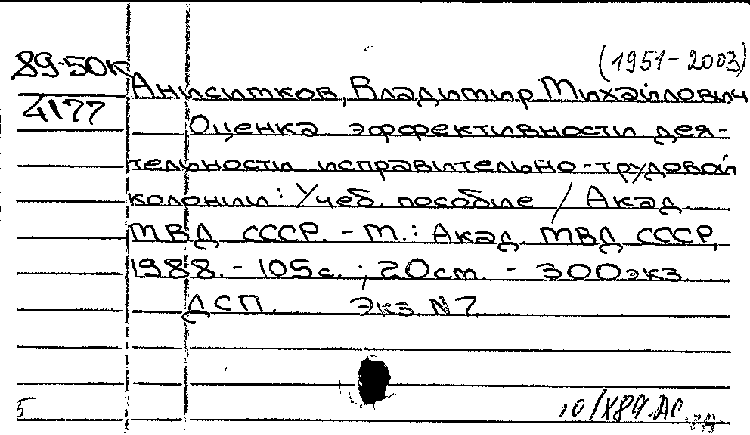 (1951-2003)
89-50К
4177
Анисимков, Владимир Михайлович
Оценка эффективности дея-
тельности исправительно-трудовой
колонии: Учеб. пособие / Акад.
МВД СССР. - М.: Акад. МВД СССР,
1988. - 105с. ; 20см. - 300экз.
ДСП. Экз. N7
5